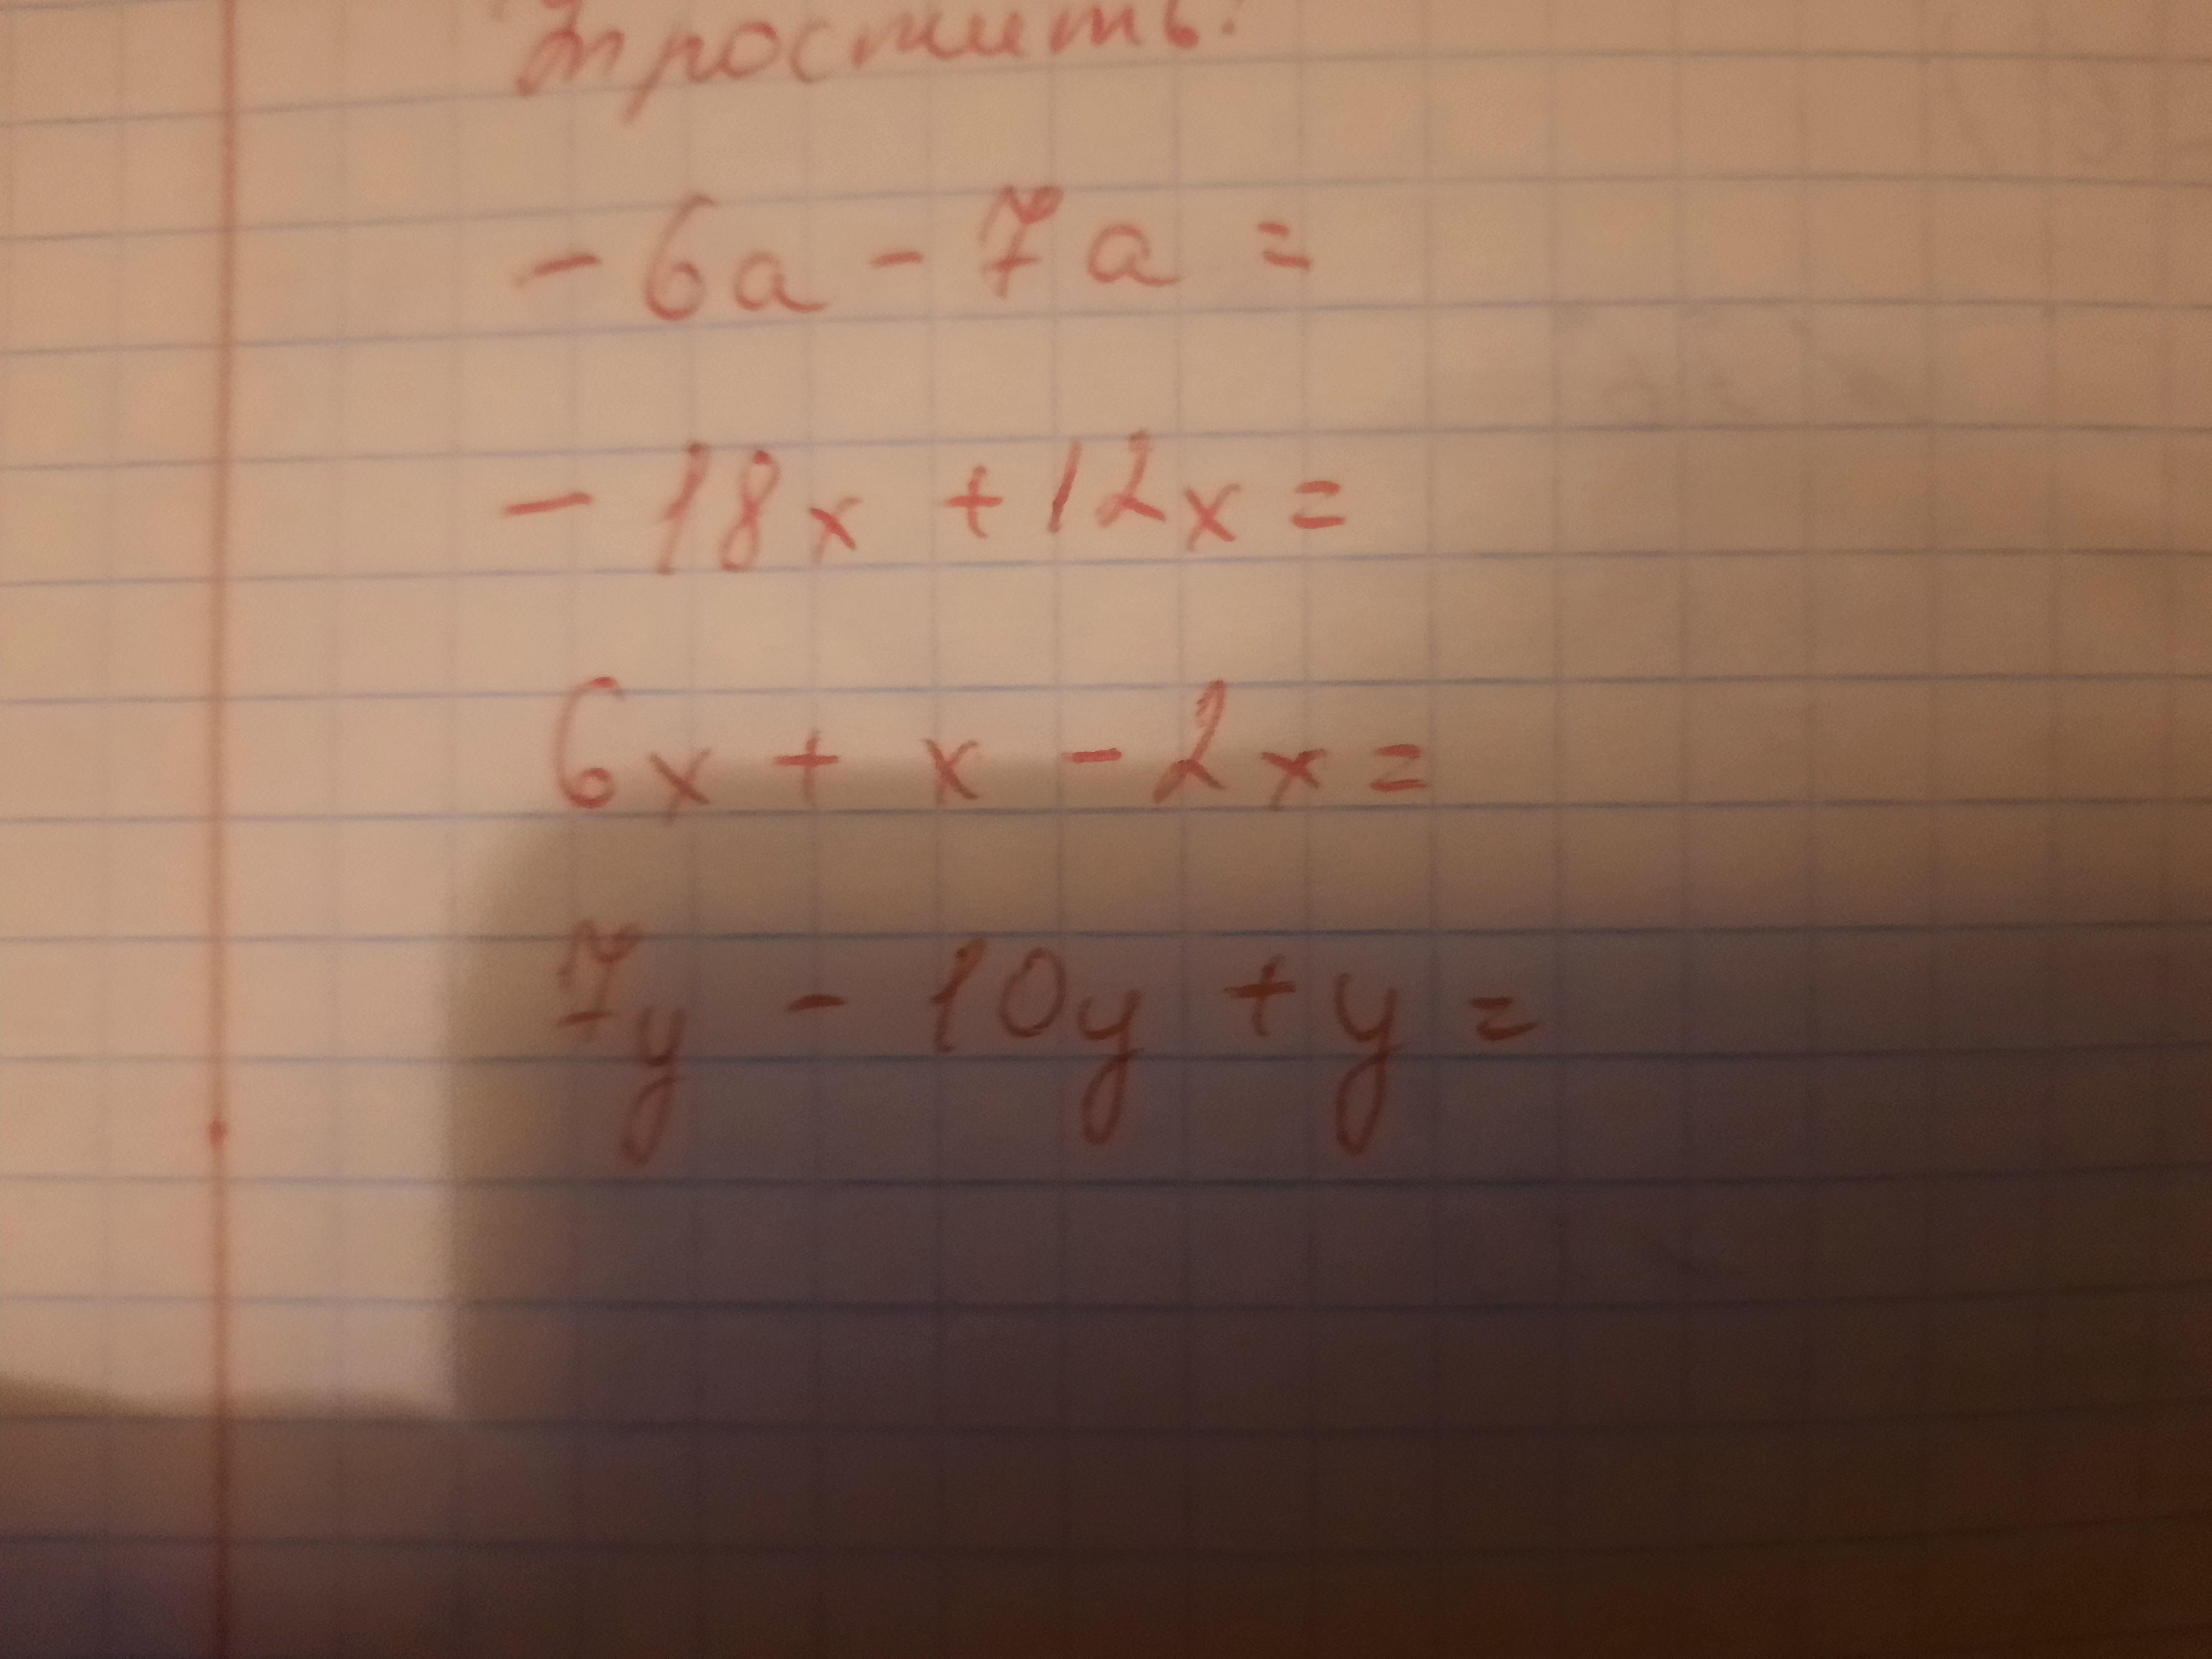 Упростить:
- 6a - 7a =
- 18x + 12x =
6x + x - 2x =
7y - 10y + y =